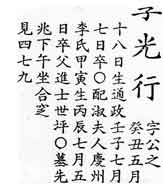 子光行
字公之
癸丑五月
十八日生通政壬子七月
七日卒○配淑夫人慶州
李氏甲寅生丙辰七月五
日卒父進士世坪○墓先
兆下午坐合窆
見四七九